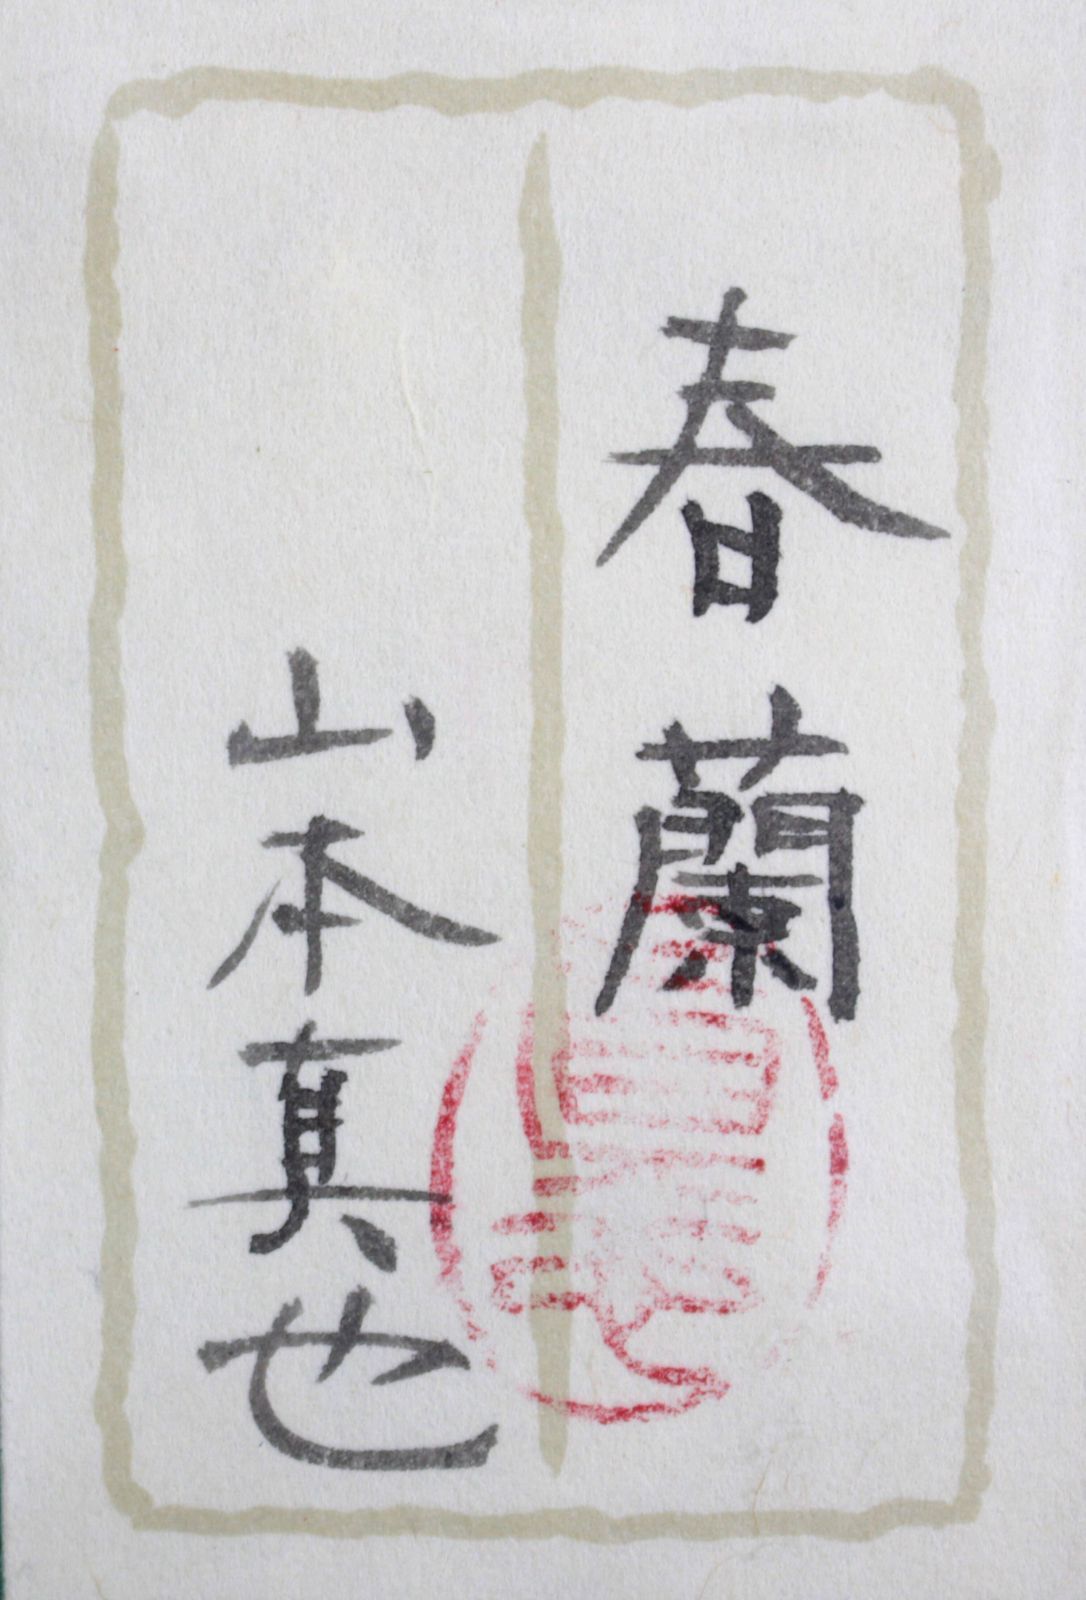 春蘭
山本真也